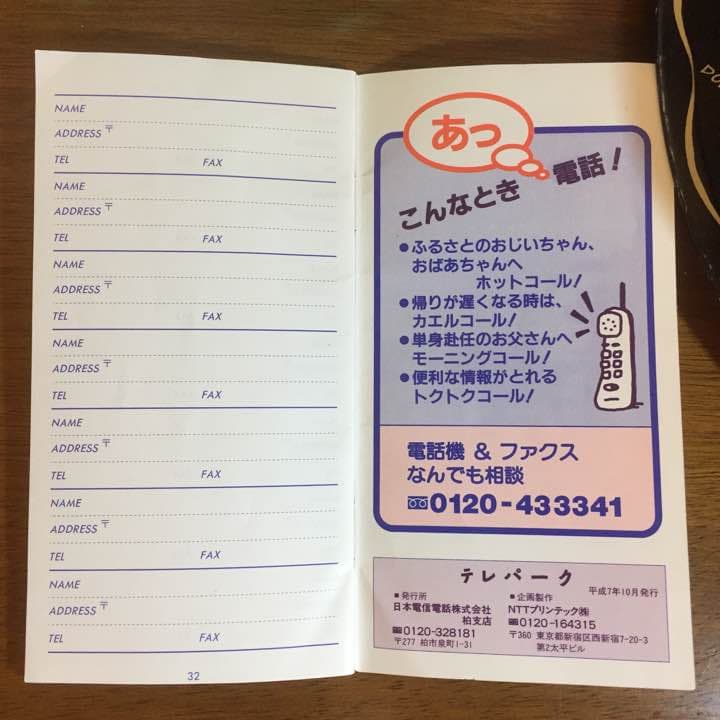 NAME
ADDRESS 〒
TEL FAX
NAME
ADDRESS 〒
TEL FAX
NAME
ADDRESS 〒
TEL FAX
NAME
ADDRESS 〒
TEL FAX
NAME
ADDRESS 〒
TEL FAX
NAME
ADDRESS 〒
TEL FAX
NAME
ADDRESS 〒
TEL FAX
32
あっ
こんなとき電話!
●ふるさとのおじいちゃん、
おばあちゃんへ
ホットコール!
●帰りが遅くなる時は、
カエルコール!
●単身赴任のお父さんへ
モーニングコール!
●便利な情報がとれる
トクトクコール!
電話機 & ファクス
なんでも相談
0120-433341
テレパーク
平成7年10月発行
■発行所
日本電信電話株式会社
柏支店
0120-328181
〒277 柏市泉町1-31
●企画製作
NTTプリンテック㈱
0120-164315
〒360 東京都新宿区西新宿7-20-3
第2太平ビル